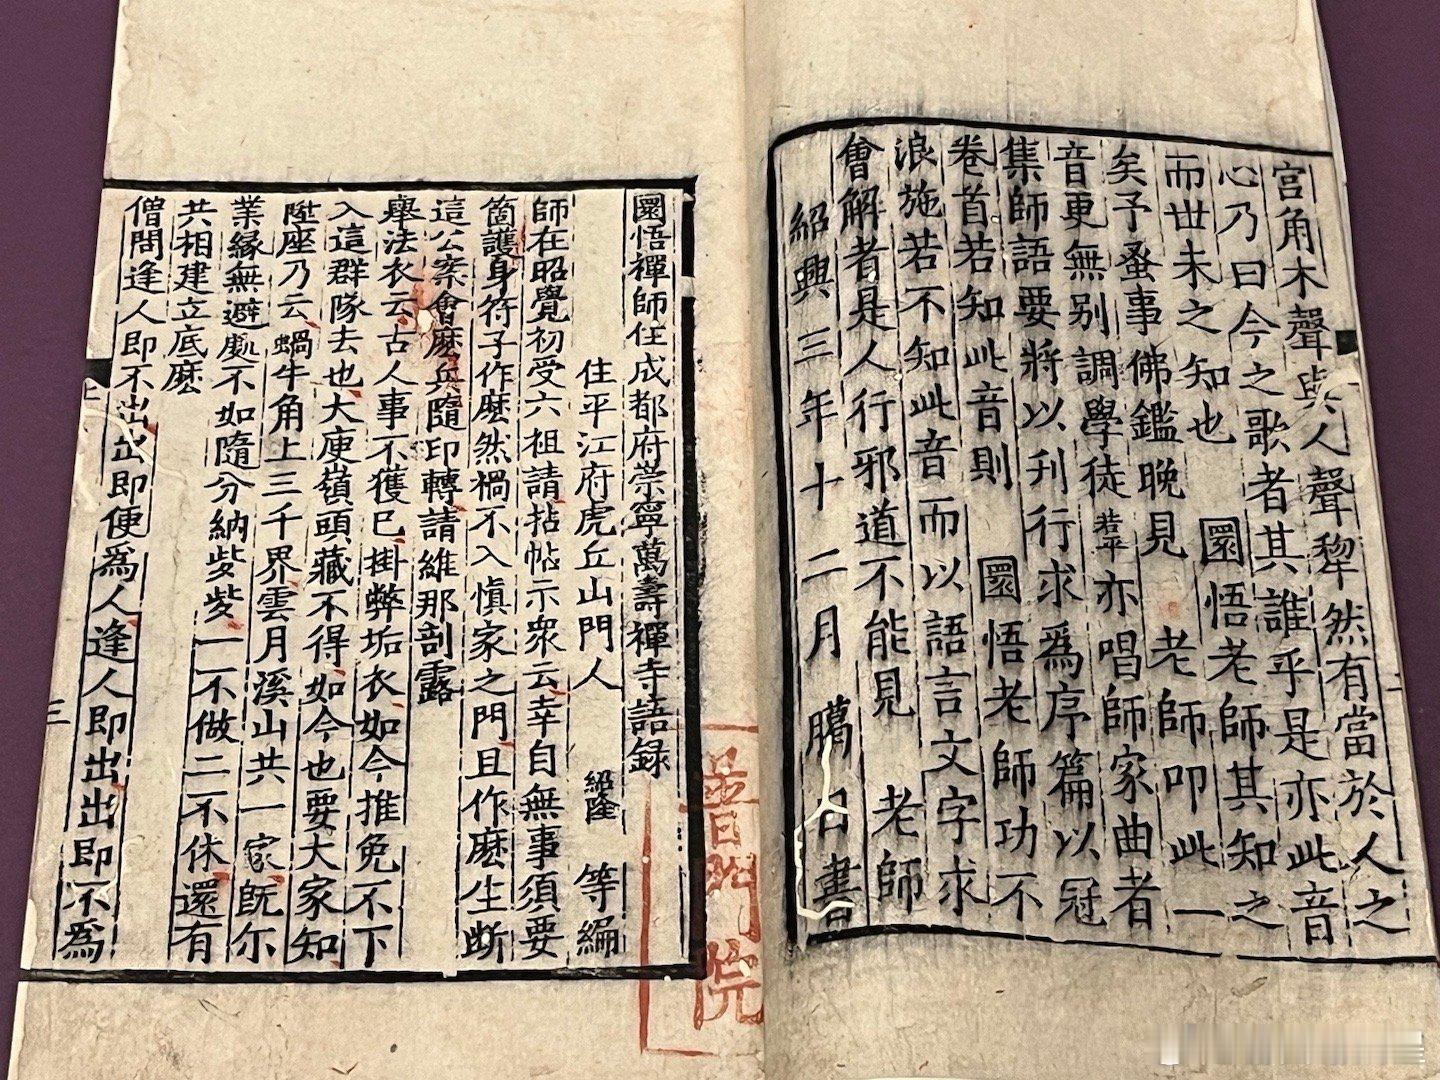 宫角木聲與人聲犂然有當於人之
心乃曰今之歌者其誰乎是亦此音
而世未之知也
圜悟老師其知之
矣予蚤事佛鑑晚見
老師叩此一
音更無别調學徒若平亦唱師家曲者
集師語要將以刋行求爲序篇以冠
卷首若知此音則
圜悟老師功不
浪施若不知此音而以語言文字求
會解者是人行邪道不能見
老師
紹興三年十二月臈日書
圜悟禪師住成都府崇寧萬壽禪寺語録
住平江府虎丘山門人 紹隆 等編
師在昭覺初受六祖請拈帖示衆云幸自無事須要
箇護身符子作麽然禍不入愼家之門且作麽生断
這公案會麽兵隨印轉請維那剖露
舉法衣云古人事不獲巳掛弊垢衣如今推免不下
入這群隊去也大庾嶺頭藏不得如今也要大家知
陞座乃云蝸牛角上三千界雲月溪山共一家旣尓
業緣無避䖏不如隨分納些些一不做二不休還有
共相建立底麽
僧問逢人即不出出即便爲人逢人即出出即不爲
三
普門院